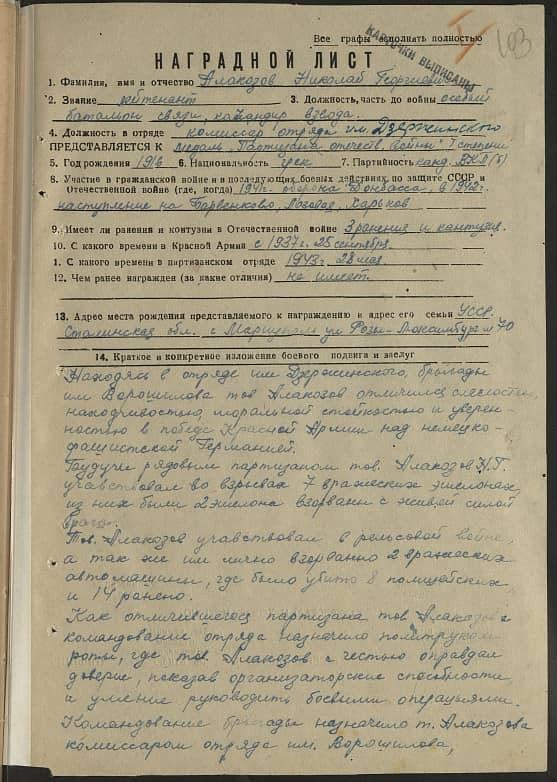 Все графы заполнять полностью
КАРТОЧКИ ВЫПИСАНЫ
103
НАГРАДНОЙ ЛИСТ
1. Фамилия, имя и отчество Алакозов Николай Георгиевич
2. Звание лейтенант 3. Должность, часть до войны особый
батальон связи, командир взвода.
4. Должность в отряде комиссар отряда им. Дзержинского
ПРЕДСТАВЛЯЕТСЯ К медаль „Партизана отечеств. войны" I степени
5. Год рождения 1916 6. Национальность грек 7. Партийность канд. ВКП(б)
8. Участие в гражданской войне и в последующих боевых действиях по защите СССР и
Отечественной войне (где, когда) 1941г. оборона Донбасса, в 1942г.
наступление на Барвенково, Лозовая, Харьков.
9. Имеет ли ранения и контузии в Отечественной войне 3 ранения и кантузия.
10. С какого времени в Красной Армии с 1937г. 25 сентября
1. С какого времени в партизанском отряде 1943г. 28 мая.
12. Чем ранее награжден (за какие отличия) не имеет.
13. Адрес места рождения представляемого к награждению и адрес его семьи УССР.
Сталинская обл. г. Мариуполь ул Розы-Люксимбург № 70
14. Краткое и конкретное изложение боевого подвига и заслуг
Находясь в отряде им Дзержинского, бригады
им Ворошилова тов Алакозов отличился смелостью,
находчивостью, моральной стойкостью и уверен-
ностью в победе Красной Армии над немецко-
фашистской Германией.
Будучи рядовым партизаном тов. Алакозов Н.Г.
учавствовал во взрывах 7 вражеских эшелонах
из них были 2 эшелона взорванн с живой силой
врага.
Тов. Алакозов учавствовал в рельсовой войне,
а так же им лично взорванно 2 вражеских
автомашины, где было убито 8 полицейских
и 14 ранено.
Как отличившегося партизана тов Алакозова
командование отряда назначило политруком
роты, где тов. Алакозов с честью оправдал
доверие, показав организаторские способности,
и умение руководить боевыми операциями.
Командование бригады назначило т. Алакозова
комиссаром отряда им. Ворошилова,